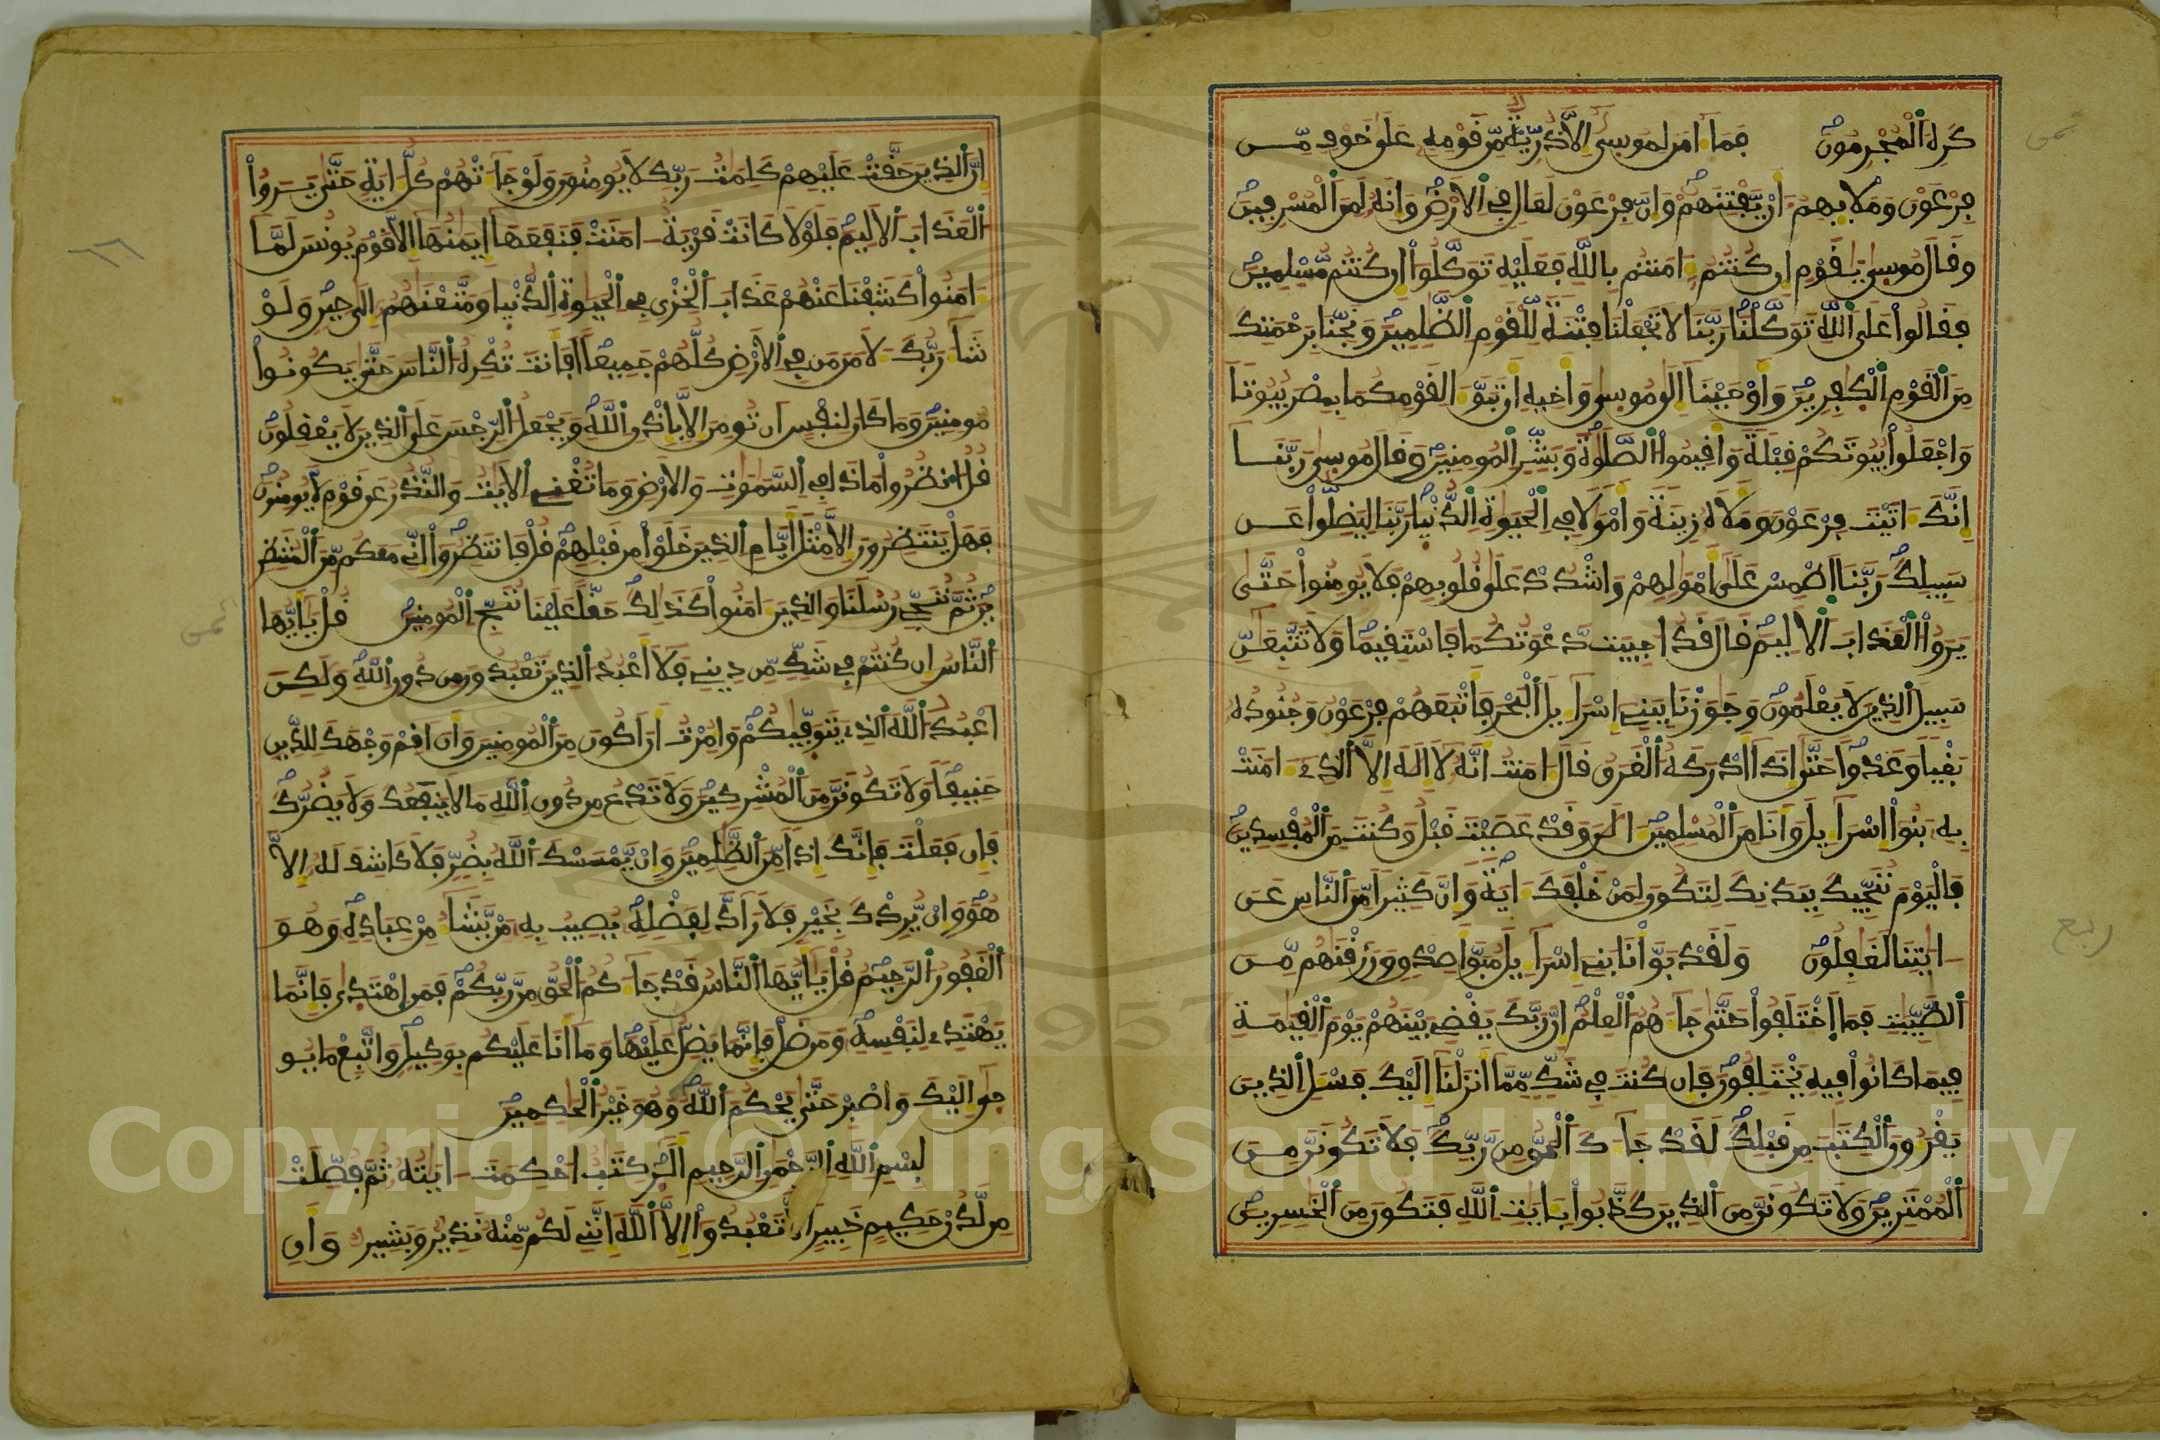 كَرِهَ ٱلْمُجْرِمُونَ فَمَآ ءَامَنَ لِمُوسِىٰٓ إِلَّا ذُرِّيَّةٌ مِّن قَوْمِهِۦ عَلَىٰ خَوْفٍ مِّن
فِرْعَوْنَ وَمَلَإِيْهِمُۥٓ أَنْ يَّفْتِنَهُمْ وَإِنَّ فِرْعَوْنَ لَعَالٍ فِى ٱلَارْضِ وَإِنَّهُۥ لَمِنَ ٱلْمُسْرِفِينَ
وَقَالَ مُوسِىٰ يَٰقَوْمِ إِن كُنتُمُۥٓ ءَامَنتُم بِاللَّهِ فَعَلَيْهِ تَوَكَّلُوٓاْ إِن كُنتُم مُّسْلِمِينَ
فَقَالُواْ عَلَى ٱللَّهِ تَوَكَّلْنَا رَبَّنَا لَا تَجْعَلْنَا فِتْنَةً لِّلْقَوْمِ ٱلظَّٰلِمِينَ وَنَجِّنَا بِرَحْمَتِكَ
مِنَ ٱلْقَوْمِ ٱلْكٰفِرِينَ وَأَوْحَيْنَآ إِلَىٰ مُوسِىٰ وَأَخِيهِ أَن تَبَوَّءَا لِقَوْمِكُمَا بِمِصْرَ بُيُوتًا
وَاجْعَلُواْ بُيُوتَكُمْ قِبْلَةً وَأَقِيمُواْ ٱلصَّلَوٰةَ وَبَشِّرِ ٱلْمُومِنِينَ وَقَالَ مُوسِىٰ رَبَّنَآ
إِنَّكَ ءَاتَيْتَ فِرْعَوْنَ وَمَلَأَهُۥ زِينَةً وَأَمْوَٰلًا فِى ٱلْحَيَوٰةِ ٱلدُّنْيَا رَبَّنَا لِيَضِلُّواْ عَن
سَبِيلِكَ رَبَّنَا ٱطْمِسْ عَلَىٰٓ أَمْوَٰلِهِمْ وَاشْدُدْ عَلَىٰ قُلُوبِهِمْ فَلَا يُومِنُواْ حَتَّىٰ
يَرَوُاْ ٱلْعَذَابَ ٱلَالِيمَ قَالَ قَدُ اجِيبَت دَّعْوَتُكُمَا فَاسْتَقِيمَا وَلَا تَتَّبِعَآنِّ
سَبِيلَ ٱلذِينَ لَا يَعْلَمُونَ وَجَٰوَزْنَا بِبَنِىٓ إِسْرَآءِيلَ ٱلْبَحْرَ فَأَتْبَعَهُمْ فِرْعَوْنُ وَجُنُودُهُۥ
بَغْيًا وَعَدْوًا حَتَّىٰٓ إِذَآ أَدْرَكَهُ ٱلْغَرَقُ قَالَ ءَامَنتُ أَنَّهُۥ لَآ إِلَٰهَ إِلَّا ٱلذِىٓ ءَامَنَتْ
بِهِۦ بَنُوٓاْ إِسْرَآءِيلَ وَأَنَا مِنَ ٱلْمُسْلِمِينَ ءَآلَٰنَ وَقَدْ عَصَيْتَ قَبْلُ وَكُنتَ مِنَ ٱلْمُفْسِدِينَ
فَالْيَوْمَ نُنَجِّيكَ بِبَدَنِكَ لِتَكُونَ لِمَنْ خَلْفَكَ ءَايَةً وَإِنَّ كَثِيرًا مِّنَ ٱلنَّاسِ عَنَ
ءَايَٰتِنَا لَغَٰفِلُونَ وَلَقَدْ بَوَّأْنَا بَنِىٓ إِسْرَآءِيلَ مُبَوَّأَ صِدْقٍ وَرَزَقْنَٰهُم مِّنَ
ٱلطَّيِّبَٰتِ فَمَا ٱخْتَلَفُواْ حَتَّىٰ جَآءَهُمُ ٱلْعِلْمُ إِنَّ رَبَّكَ يَقْضِى بَيْنَهُمْ يَوْمَ ٱلْقِيَٰمَةِ
فِيمَا كَانُواْ فِيهِ يَخْتَلِفُونَ فَإِن كُنتَ فِى شَكٍّ مِّمَّآ أَنزَلْنَآ إِلَيْكَ فَسْـَٔلِ ٱلذِينَ
يَقْرَءُونَ ٱلْكِتَٰبَ مِن قَبْلِكَ لَقَدْ جَآءَكَ ٱلْحَقُّ مِن رَّبِّكَ فَلَا تَكُونَنَّ مِنَ
ٱلْمُمْتَرِينَ وَلَا تَكُونَنَّ مِنَ ٱلذِينَ كَذَّبُواْ بِـَٔايَٰتِ ٱللَّهِ فَتَكُونَ مِنَ ٱلْخَٰسِرِينَ
ثمن
ربع
إِنَّ ٱلذِينَ حَقَّتْ عَلَيْهِمْ كَلِمَٰتُ رَبِّكَ لَا يُومِنُونَ وَلَوْ جَآءَتْهُمْ كُلُّ ءَايَةٍ حَتَّىٰ يَرَوُاْ
ٱلْعَذَابَ ٱلَالِيمَ فَلَوْلَا كَانَتْ قَرْيَةٌ ءَامَنَتْ فَنَفَعَهَآ إِيمَٰنُهَآ إِلَّا قَوْمَ يُونُسَ لَمَّآ
ءَامَنُواْ كَشَفْنَا عَنْهُمْ عَذَابَ ٱلْخِزْىِ فِى ٱلْحَيَوٰةِ ٱلدُّنْيَا وَمَتَّعْنَٰهُمُۥٓ إِلَىٰ حِينٍ وَلَوْ
شَآءَ رَبُّكَ لَأٓمَنَ مَن فِى ٱلَارْضِ كُلُّهُمْ جَمِيعًا أَفَأَنتَ تُكْرِهُ ٱلنَّاسَ حَتَّىٰ يَكُونُواْ
مُومِنِينَ وَمَا كَانَ لِنَفْسٍ أَن تُومِنَ إِلَّا بِإِذْنِ ٱللَّهِ وَيَجْعَلُ ٱلرِّجْسَ عَلَى ٱلذِينَ لَا يَعْقِلُونَ
قُلُ ٱنظُرُواْ مَاذَا فِى ٱلسَّمَٰوَٰتِ وَالَارْضِ وَمَا تُغْنِى ٱلَايَٰتُ وَالنُّذُرُ عَن قَوْمٍ لَّا يُومِنُونَ
فَهَلْ يَنتَظِرُونَ إِلَّا مِثْلَ أَيَّامِ ٱلذِينَ خَلَوْاْ مِن قَبْلِهِمْ قُلْ فَانتَظِرُوٓاْ إِنِّى مَعَكُم مِّنَ ٱلْمُنتَظِ
رِينَ ثُمَّ نُنَجِّى رُسُلَنَا وَالذِينَ ءَامَنُواْ كَذَٰلِكَ حَقًّا عَلَيْنَا نُنَجِّ ٱلْمُومِنِينَ قُلْ يَٰٓأَيُّهَا
ٱلنَّاسُ إِن كُنتُمْ فِى شَكٍّ مِّن دِينِى فَلَآ أَعْبُدُ ٱلذِينَ تَعْبُدُونَ مِن دُونِ ٱللَّهِ وَلَٰكِنَ
اَعْبُدُ ٱللَّهَ ٱلذِى يَتَوَفَّىٰكُمْ وَأُمِرْتُ أَنَ اَكُونَ مِنَ ٱلْمُومِنِينَ وَأَنَ اَقِمْ وَجْهَكَ لِلدِّينِ
حَنِيفًا وَلَا تَكُونَنَّ مِنَ ٱلْمُشْرِكِينَ وَلَا تَدْعُ مِن دُونِ ٱللَّهِ مَا لَا يَنفَعُكَ وَلَا يَضُرُّكَ
فَإِن فَعَلْتَ فَإِنَّكَ إِذًا مِّنَ ٱلظَّٰلِمِينَ وَإِنْ يَّمْسَسْكَ ٱللَّهُ بِضُرٍّ فَلَا كَاشِفَ لَهُۥٓ إِلَّا
هُوَ وَإِنْ يُّرِدْكَ بِخَيْرٍ فَلَا رَآدَّ لِفَضْلِهِۦ يُصِيبُ بِهِۦ مَنْ يَّشَآءُ مِنْ عِبَادِهِۦ وَهُوَ
ٱلْغَفُورُ ٱلرَّحِيمُ قُلْ يَٰٓأَيُّهَا ٱلنَّاسُ قَدْ جَآءَكُمُ ٱلْحَقُّ مِن رَّبِّكُمْ فَمَنِ ٱهْتَدَىٰ فَإِنَّمَا
يَهْتَدِى لِنَفْسِهِۦ وَمَن ضَلَّ فَإِنَّمَا يَضِلُّ عَلَيْهَا وَمَآ أَنَا عَلَيْكُم بِوَكِيلٍ وَاتَّبِعْ مَا يُو
حَىٰٓ إِلَيْكَ وَاصْبِرْ حَتَّىٰ يَحْكُمَ ٱللَّهُ وَهُوَ خَيْرُ ٱلْحَٰكِمِينَ
بِسْمِ ٱللَّهِ ٱلرَّحْمَٰنِ ٱلرَّحِيمِ أَلَٓرۚ كِتَٰبٌ احْكِمَتَ ءَايَٰتُهُۥ ثُمَّ فُصِّلَتْ
مِن لَّدُنْ حَكِيمٍ خَبِيرٍ أَلَّا تَعْبُدُوٓاْ إِلَّا ٱللَّهَ إِنَّنِى لَكُم مِّنْهُ نَذِيرٌ وَبَشِيرٌ وَأَنِ
ثمن
Copyright © King Saud University
1957